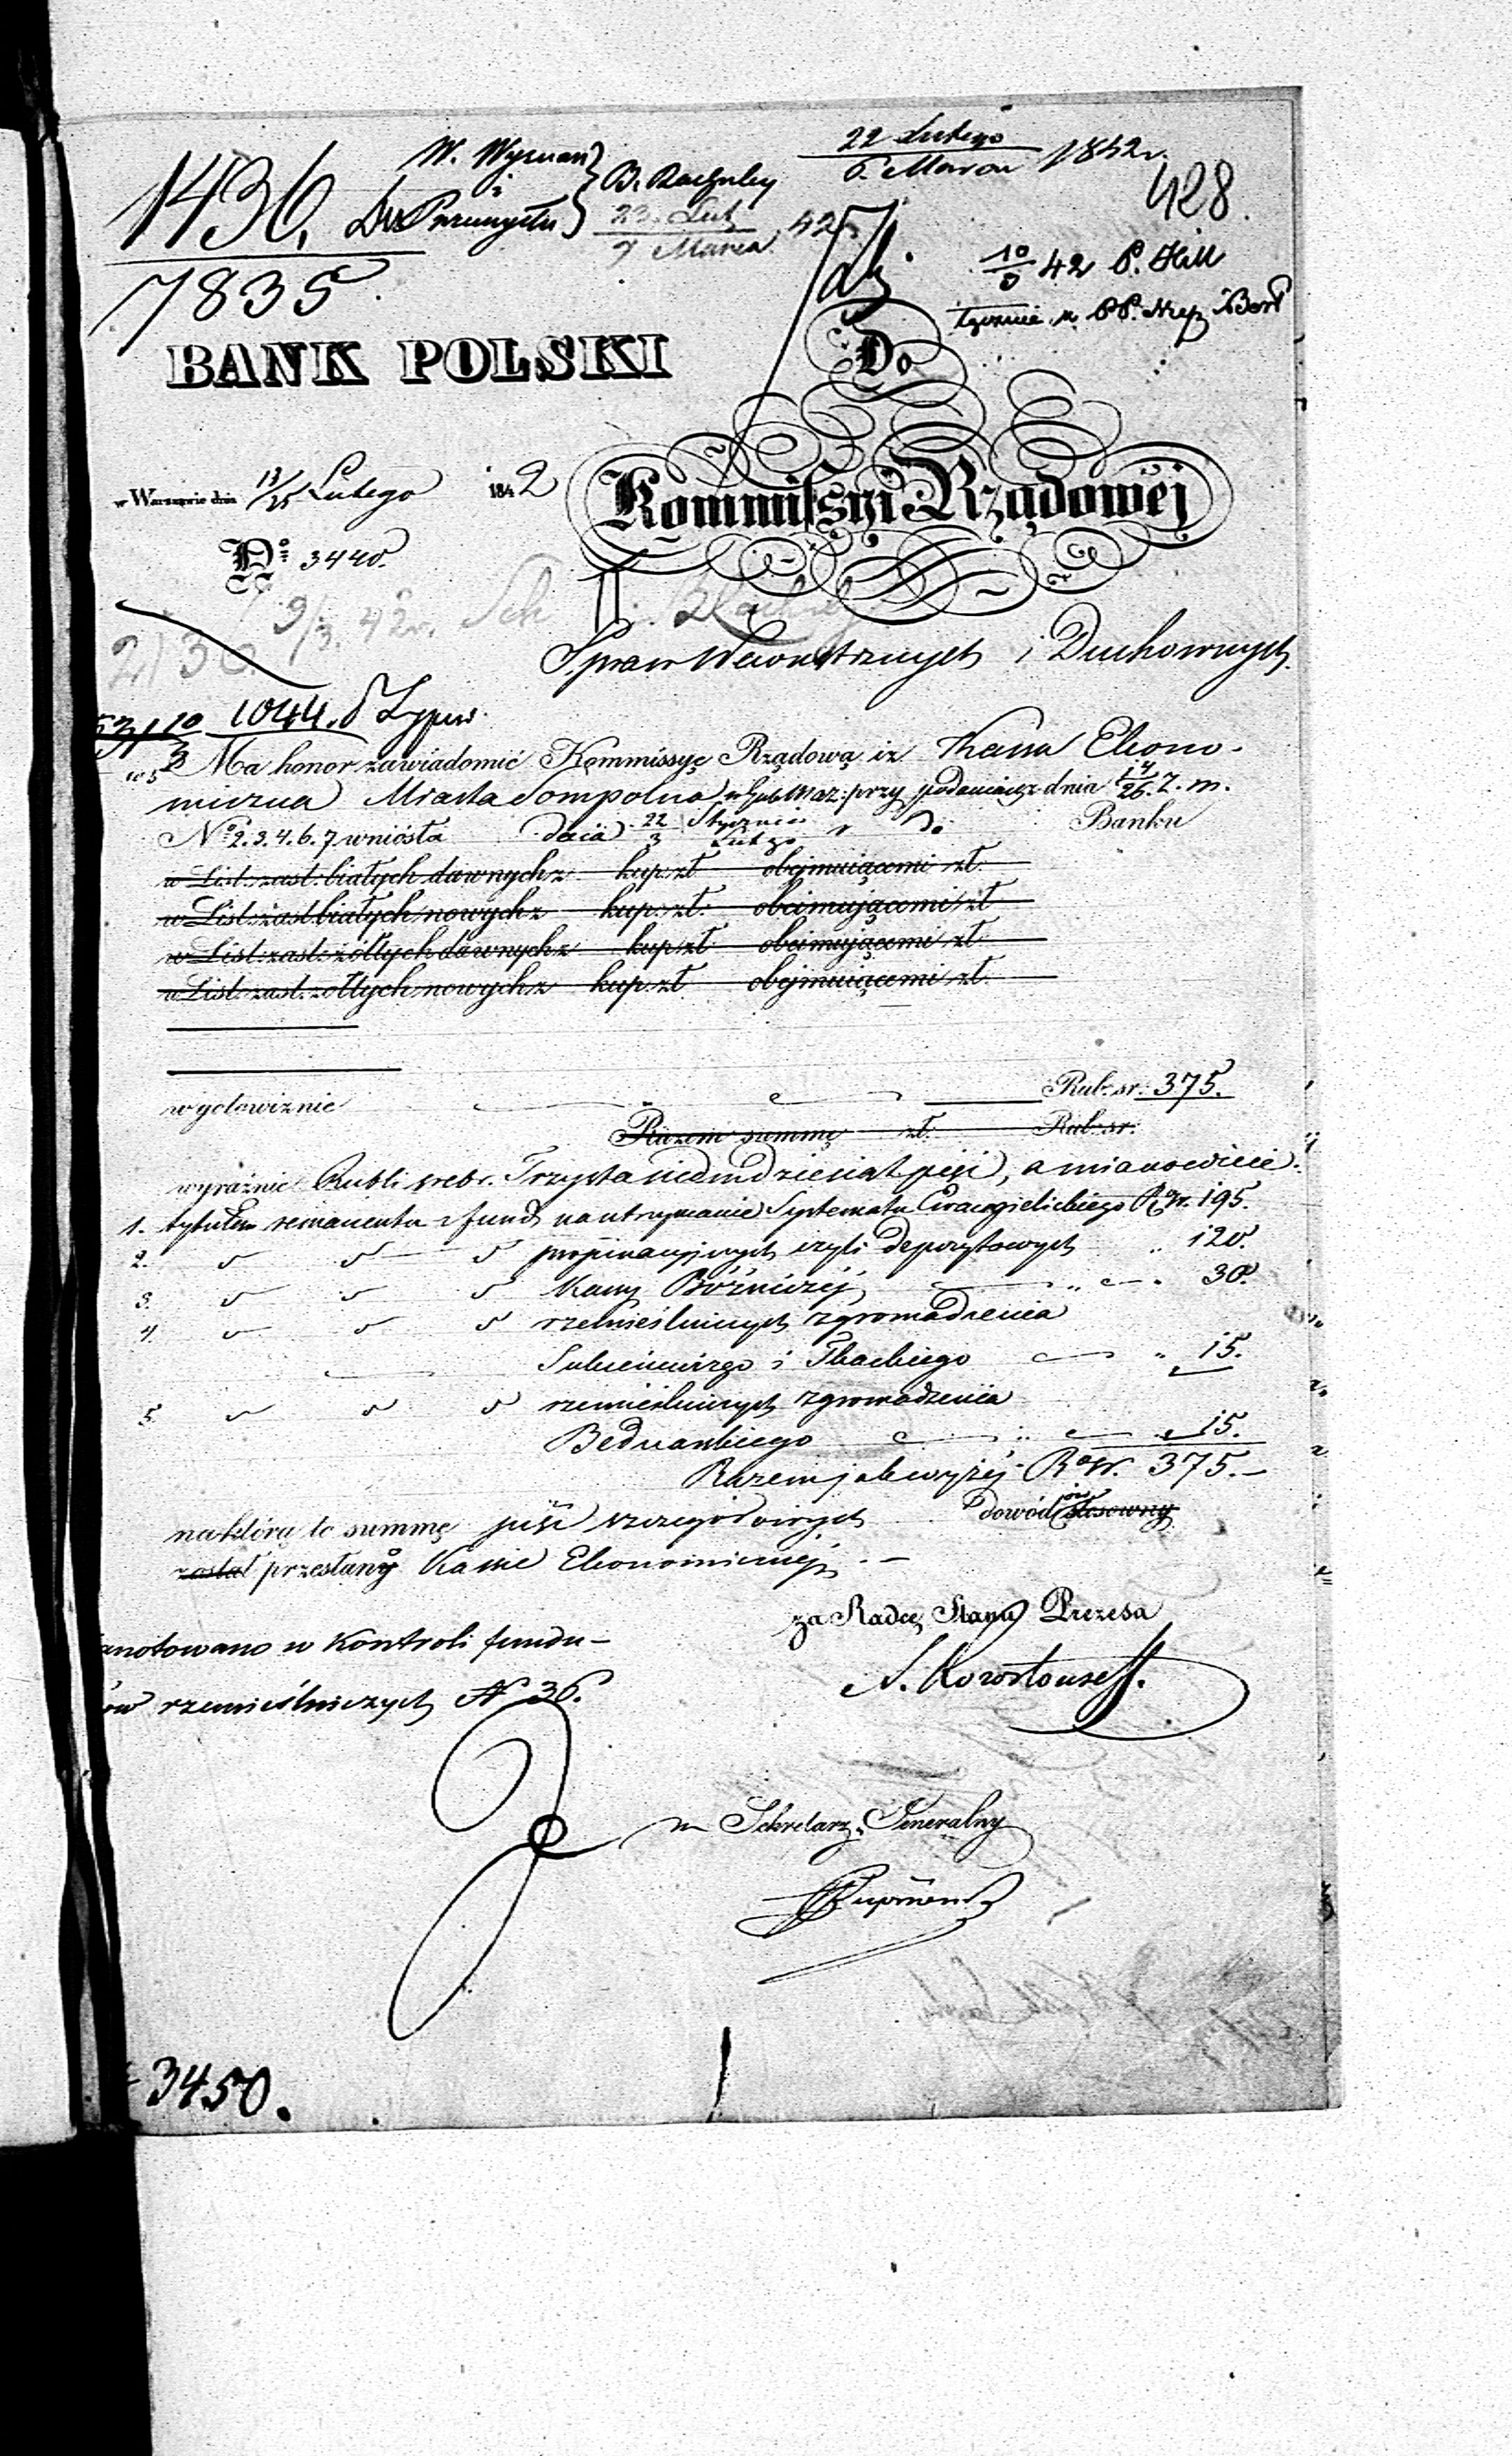 W. Wyznań
i
Przemysłu
22 Lutego
6. Marca 1842 r.
428.
1436.
23. Lut
7 Marca 42
7835
42 P. Hill
BANK POLSKI
Do
Kommissyi Rządowéj
w Warszawie dnia 13/25 Lutego 1842
No 3440.
9/3. 42 r.
Spraw Wewnętrznych i Duchownych
1044.
Ma honor zawiadomić Kommissyę Rządową iż Kassa Ekono-
miczna Miasta Sompolna w Gub: Maz: przy podaniach z dnia 14/26 z. m.
No 2. 3. 4. 6. 7 wniosła dnia 22/3 Stycznia/Lutego r do Banku
w List: zast: białych dawnych z kup: zł obejmuiącemi zł.
w List: zast: białych nowych z kup: zł: obejmującemi zł
w List: zast: żółtych dawnych z kup: zł obejmującemi zł
w List: zast: żółtych nowych z kup: zł obejmuiącemi zł.
w gotowiznie Rub: sr: 375.
Razem summę zł. Rub: sr:
wyraźnie Rubli srebr. Trzysta siedmdziesiąt pięć, a mianowicie:
1. tytułem remanentu z fund na utrzymanie Systematu Ewangielickiego Rsr. 195.
2. propinacyjnych czyli depozytowych " 120.
3. Kassy Bóżniczéj " 30.
4. rzemieślniczych zgromadzenia
Sukienniczego i Tkackiego " 15.
5. rzemieślniczych zgromadzenia
Bednarskiego " 15.
Razem jak wyżéj Rsr. 375.—
na którą to summę pięć szczegółowych dowodów stosowny
został przesłany Kassie Ekonomicznéj. —
za Radcę Stanu Prezesa
anotowano w Kontroli fundu-
ów rzemieślniczych No 36.
Sekretarz Generalny
3450.